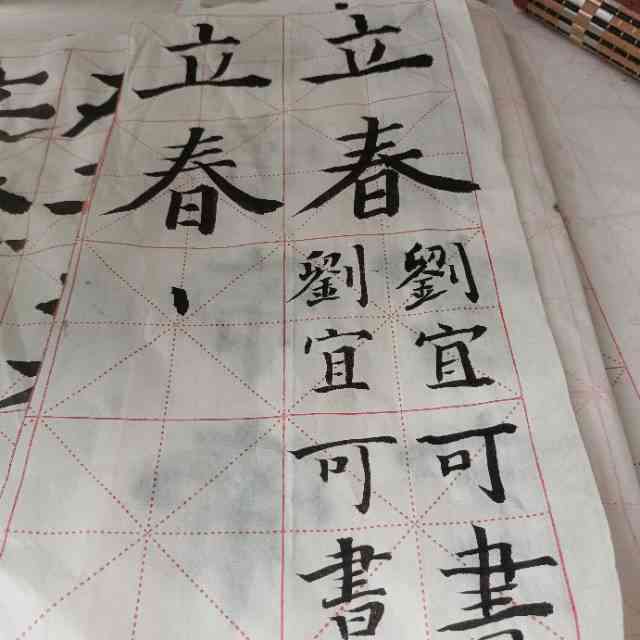 立春
劉宜可書
立春
劉宜可書